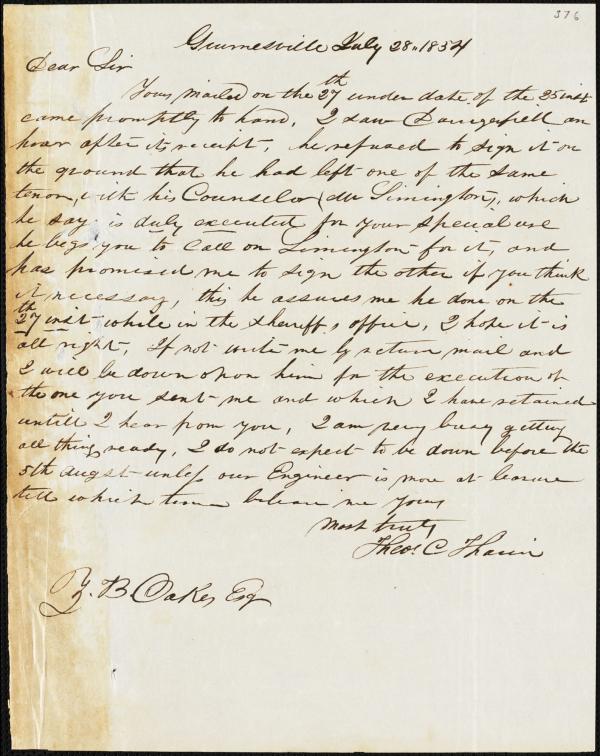 376
Giurnesville July 28 .. 1854
Dear Sir
Yours mailed on the 27th under date of the 25 inst
came promptly to hand, I saw Dangerfiell an
hour after its receipt, he refused to sign it on
the ground that he had left one of the same
tenor, with his Counselor (Mr Simington), which
he say is duly executed for your special use
he begs you to Call on Simington for it, and
has promised me to sign the other if you think
it necessary, this he assures me he done on the
27th inst while in the shariff,s office, I hope it is
all right, If not write me by return mail and
I will be down upon him for the execution of
the one you sent me and which I have retained
untill I hear from you, I am very busy getting
all things ready, I do not expect to be down before the
5th Augst unless our Engineer is more at leasure
till which time believe me yours
most truly
Theos. C Tharin
Z. B. Oakes Esq